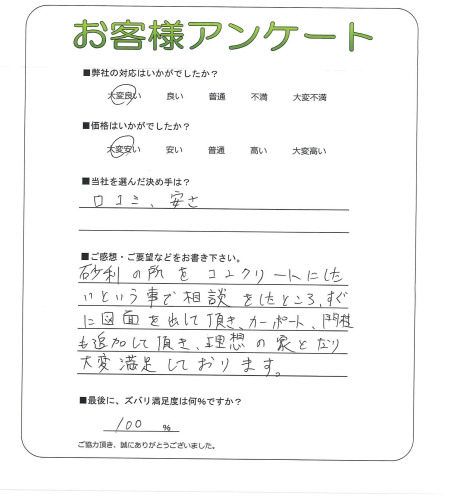 お客様アンケート
■弊社の対応はいかがでしたか？
大変良い 良い 普通 不満 大変不満
■価格はいかがでしたか？
大変安い 安い 普通 高い 大変高い
■当社を選んだ決め手は？
口コミ、安さ
■ご感想・ご要望などをお書き下さい。
砂利の所をコンクリートにした
いという事で相談をしたところ、すぐ
に図面を出して頂き、カーポート、門柱
も追加して頂き、理想の家となり
大変満足しております。
■最後に、ズバリ満足度は何%ですか？
100 %
ご協力頂き、誠にありがとうございました。